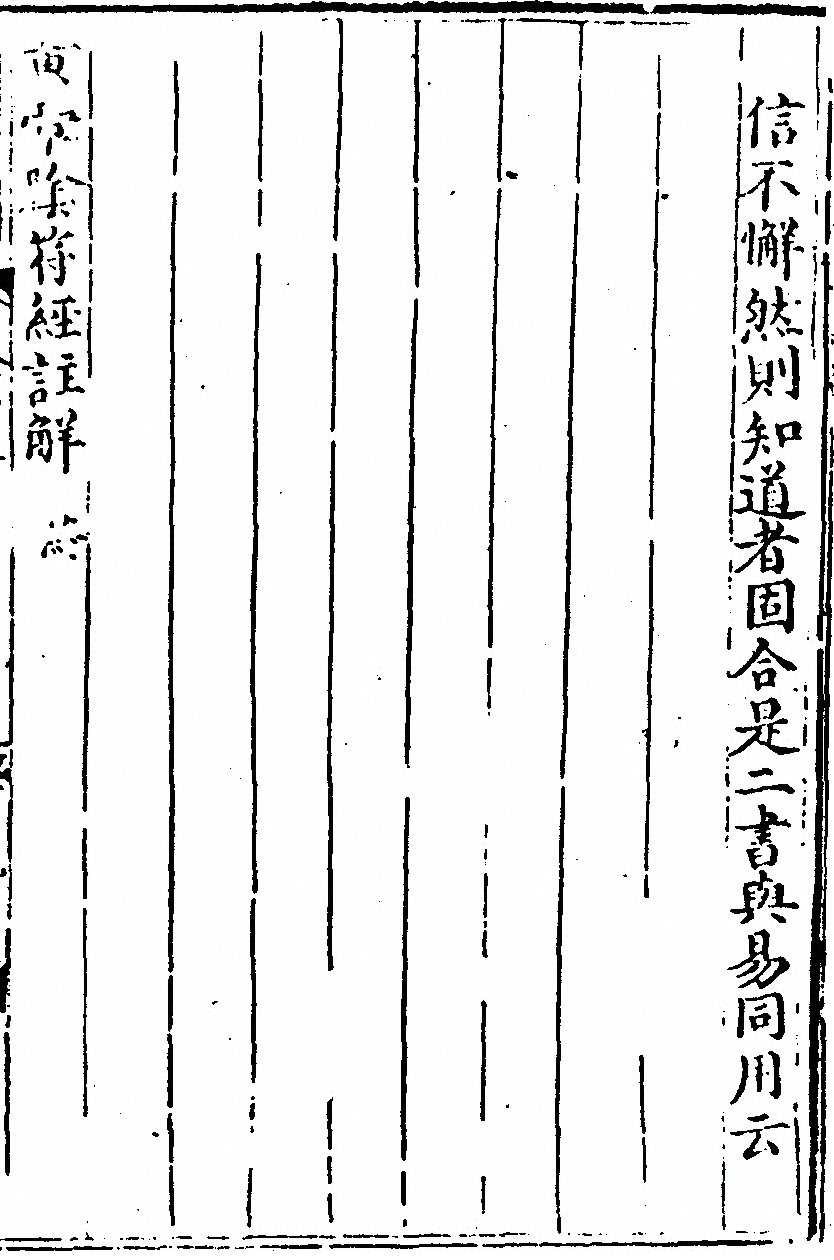 信不懈然則知道者固合是二書與易同用云
黃帝陰符經註解 終